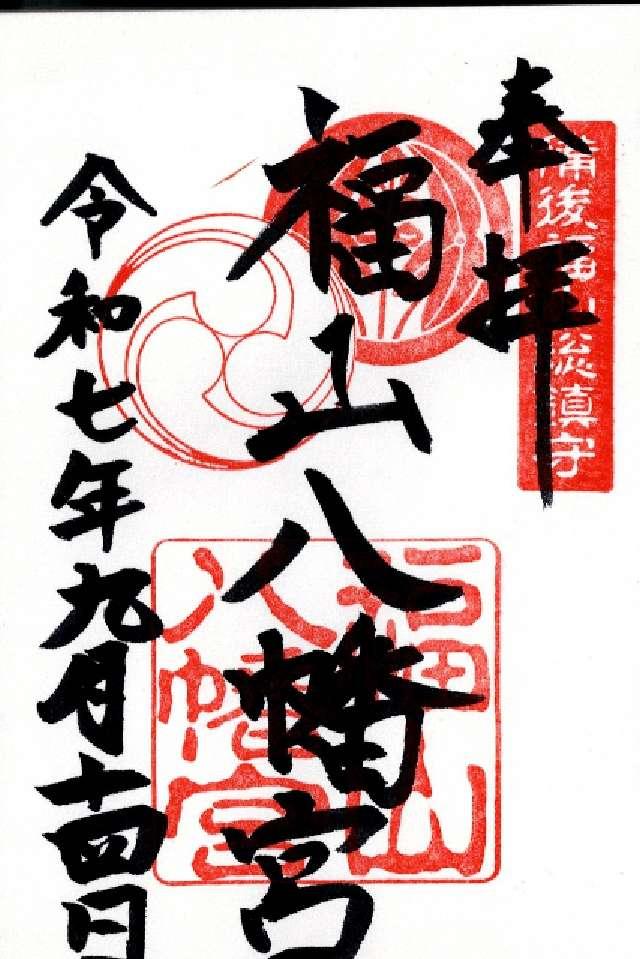 奉拝
備後福山総鎮守
福山八幡宮
福山
八幡宮
令和七年九月十四日